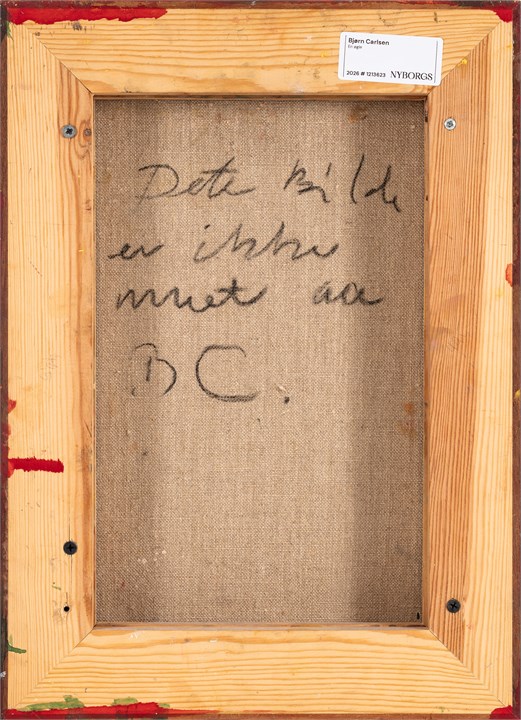 Bjørn Carlsen
2026 # 1213623 NYBORGS
Dete Bilde
er ikke
mået aa
BC.